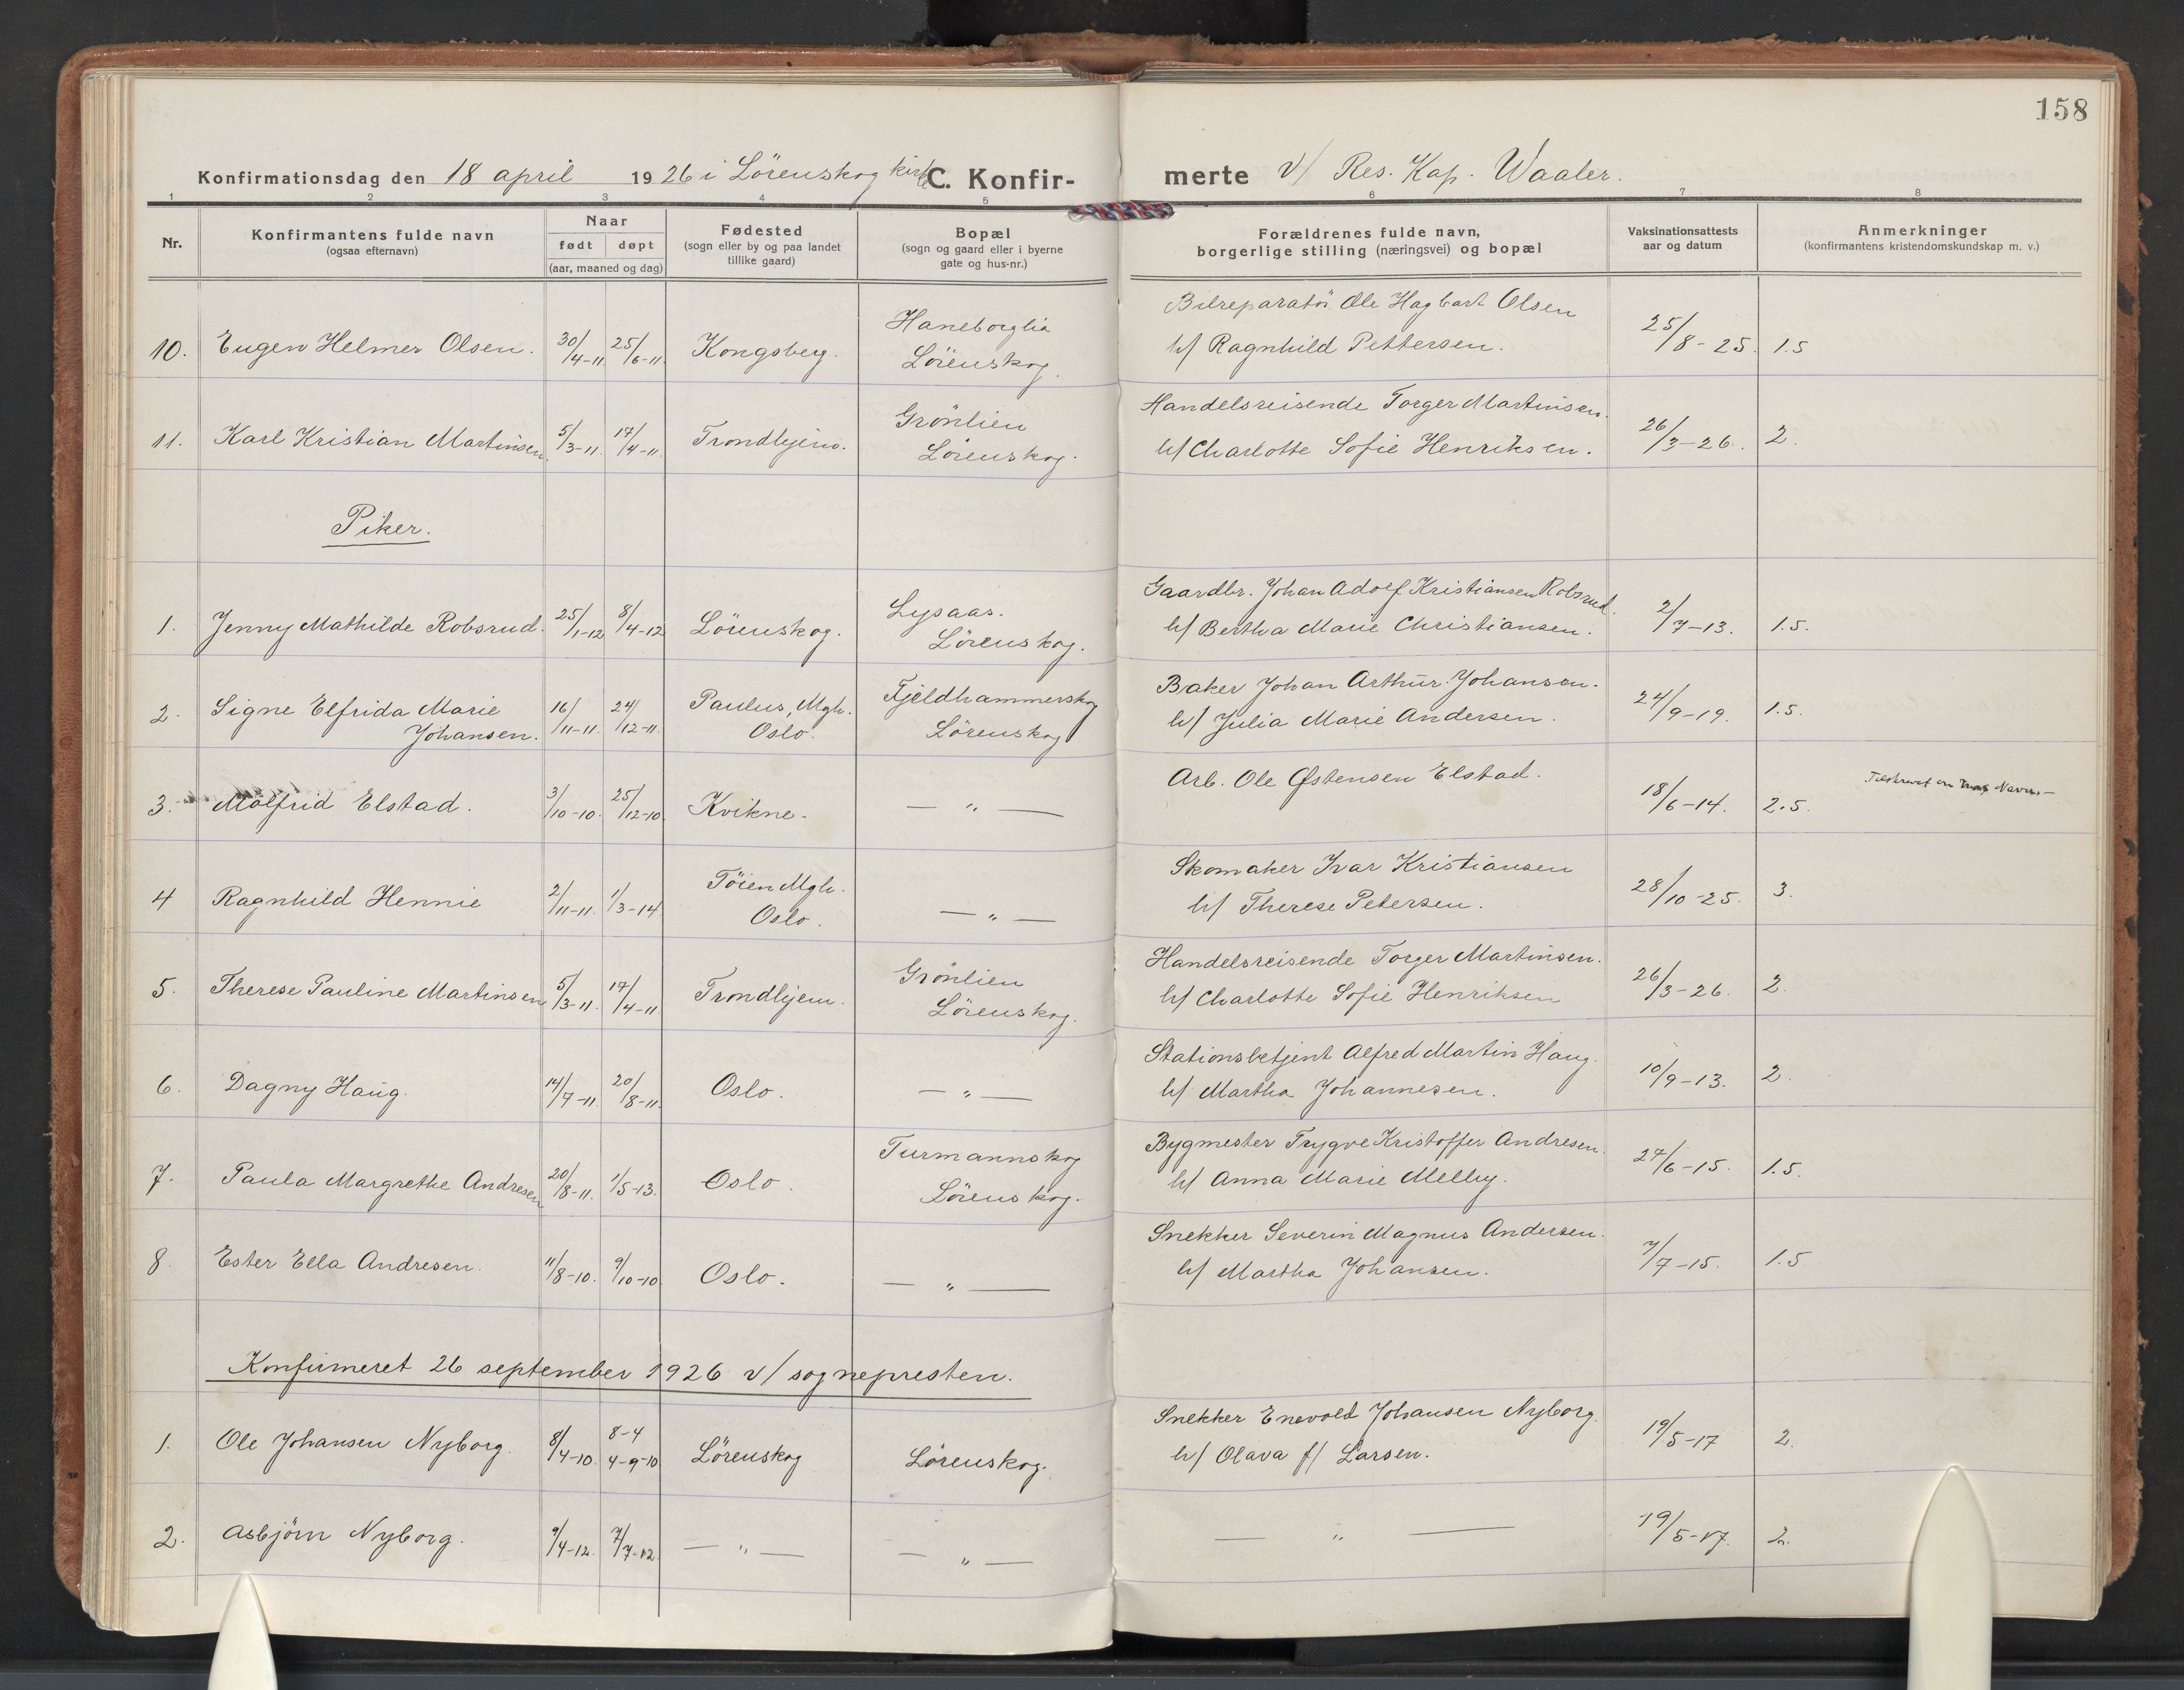 158
Konfirmationsdag den 18 april 1926 i Lörenskog kirke C. Konfirmerte v/ Res. Kap. Waaler.
1 2 3 4 5 6 7 8
Nr.
Konfirmantens fulde navn
(ogsaa efternavn)
Naar
født døpt
(aar, maaned og dag)
Fødested
(sogn eller by og paa landet
tillike gaard)
Bopæl
(sogn og gaard eller i byerne
gate og hus-nr.)
Forældrenes fulde navn,
borgerlige stilling (næringsvei) og bopæl
Vaksinationsattests
aar og datum
Anmerkninger
(konfirmantens kristendomskundskap m. v.)
10. Eugen Helmer Olsen. 30/4-11. 25/6-11. Kongsberg. Haneborglia Lörenskog. Bilreparatör Ole Hagbart Olsen
h/ Ragnhild Pettersen. 25/8-25. 1.5
11. Karl Kristian Martinsen. 5/3-11. 17/4-11. Trondhjem. Grönlien Lörenskog. Handelsreisende Torger Martinsen.
h/ Charlotte Sofie Henriksen. 26/3-26. 2.
Piker.
1. Jenny Mathilde Robsrud. 25/1-12 8/4-12 Lörenskog. Lysaas. Lörenskog. Gaardbr. Johan Adolf Kristiansen Robsrud.
h/ Bertha Marie Christiansen. 2/7-13. 1.5.
2. Signe Elfrida Marie Johansen. 16/11-11. 24/12-11. Paulus, Mgh. Oslo. Fjeldhammerskog Lörenskog Baker Johan Arthur Johansen.
h/ Julia Marie Andersen. 24/9-19. 1.5.
3. Målfrid Elstad. 3/10-10. 25/12-10. Kvikne. — " — Arb. Ole Østensen Elstad. 18/6-14. 2.5. Navn.—
4 Ragnhild Hennie 2/11-11. 1/3-14. Töien Mgh. Oslo. — " — Skomaker Ivar Kristiansen
h/ Therese Petersen. 28/10-25. 3.
5. Therese Pauline Martinsen 5/3-11. 17/4-11. Trondhjem. Grönlien Lörenskog. Handelsreisende Torger Martinsen.
h/ Charlotte Sofie Henriksen 26/3-26. 2.
6. Dagny Haug. 14/7-11. 20/8-11. Oslo. — " — Stationsbetjent Alfred Martin Haug.
h/ Martha Johannesen. 10/9-13. 2.
7. Paula Margrethe Andresen 20/8-11. 1/5-13. Oslo. Turmannskog Lörenskog. Bygmester Trygve Kristoffer Andresen.
h/ Anna Marie Melby. 24/6-15. 1.5.
8. Ester Ella Andresen. 11/8-10. 9/10-10. Oslo. — " — Snekker Severin Magnus Andersen.
h/ Martha Johansen. 7/7-15. 1.5
Konfirmeret 26 september 1926 v/ sognepresten.
1. Ole Johansen Nyborg. 8/4-10. 8-4 4-9-10 Lörenskog Lörenskog. Snekker Enevold Johansen Nyborg.
h/ Olava f/ Larsen. 19/5-17 2.
2. Asbjörn Nyborg. 9/4-12. 7/7-12. — " — — " — — " — 19/5-17. 2.